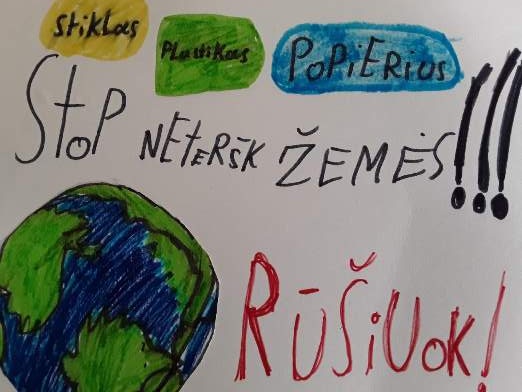 Stiklas Plastikas POPiERius
STOP NETERŠK ŽEMĖS!!!
RŪŠiUOK!